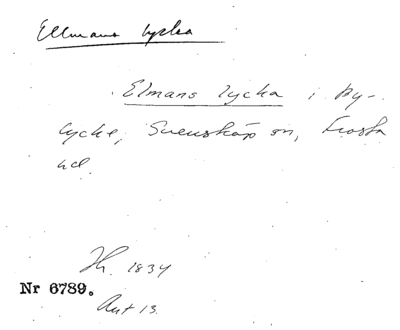 Ellmans lycka
Elmans lycka i By-
lycke, Svensköp sn, Frosta
hd.
Jh. 1834
Nr 6789.
Ant 13.